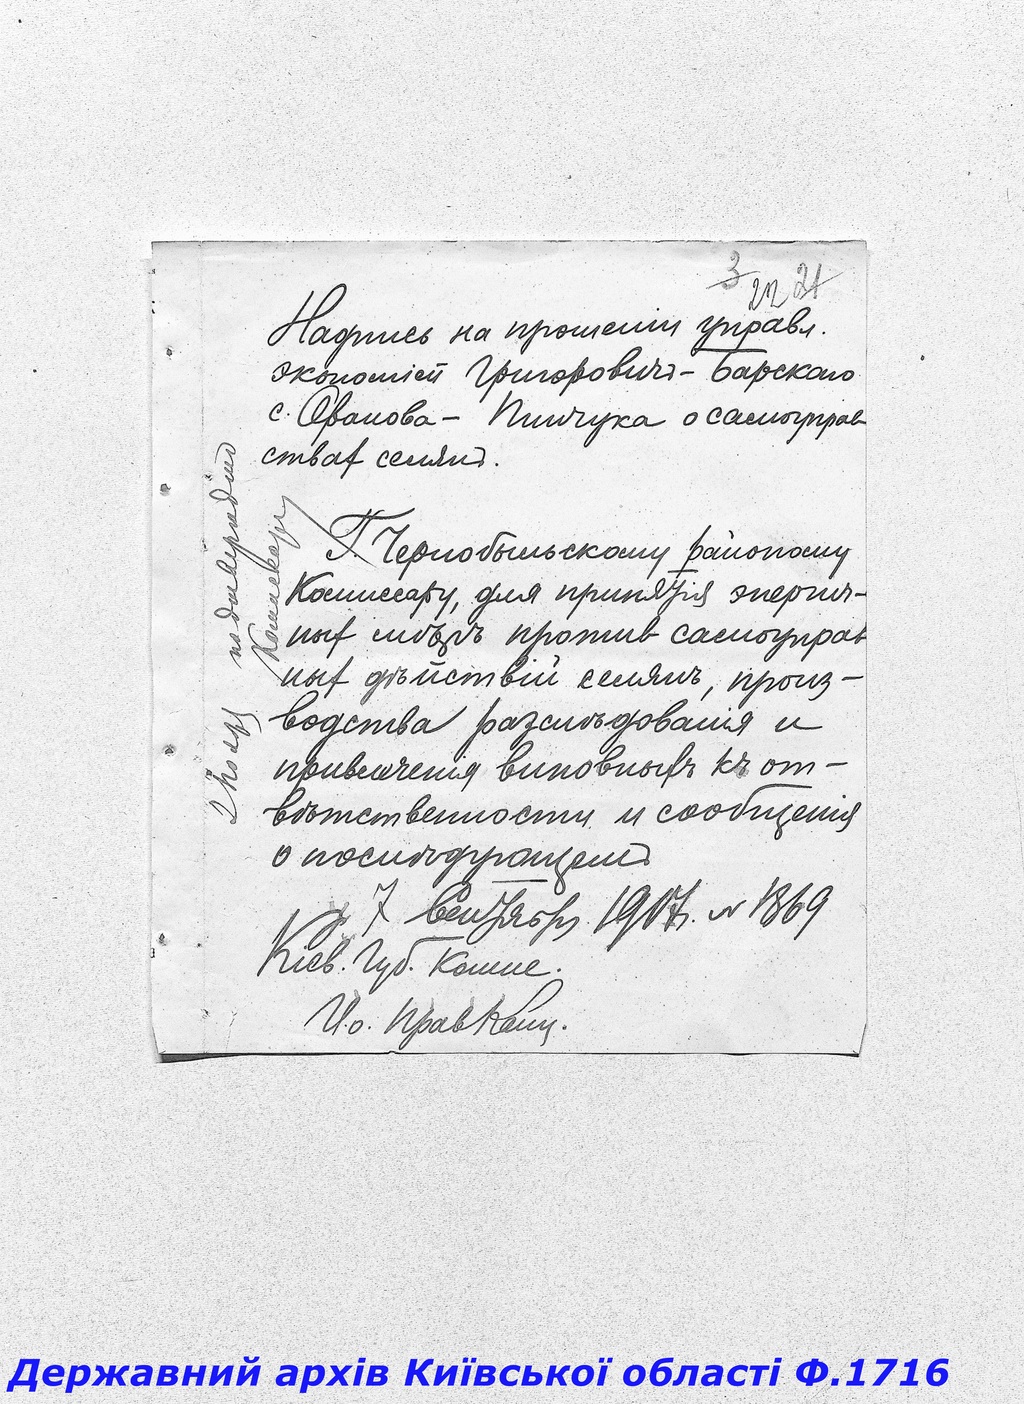 3 22 21
Надпись на прошеніи управл.
экономіей Григоровичъ-Барскаго
с. Оранова - Пинчука о самоуправ
ствах селянъ.
Г. Чернобыльскому районному
Комиссару, для принятія энергич-
ных мѣръ против самоуправ
ных дѣйствій селянъ, произ-
водства разслѣдованія и
привлеченія виновныхъ къ от-
вѣтственности и сообщенія
о послѣдующемъ
7 Сентября 1917г. № 1869
Кіев. Губ. Комис.
И.о. Прав Канц.
подтверждено
Комиссару
Державний архів Київської області Ф.1716